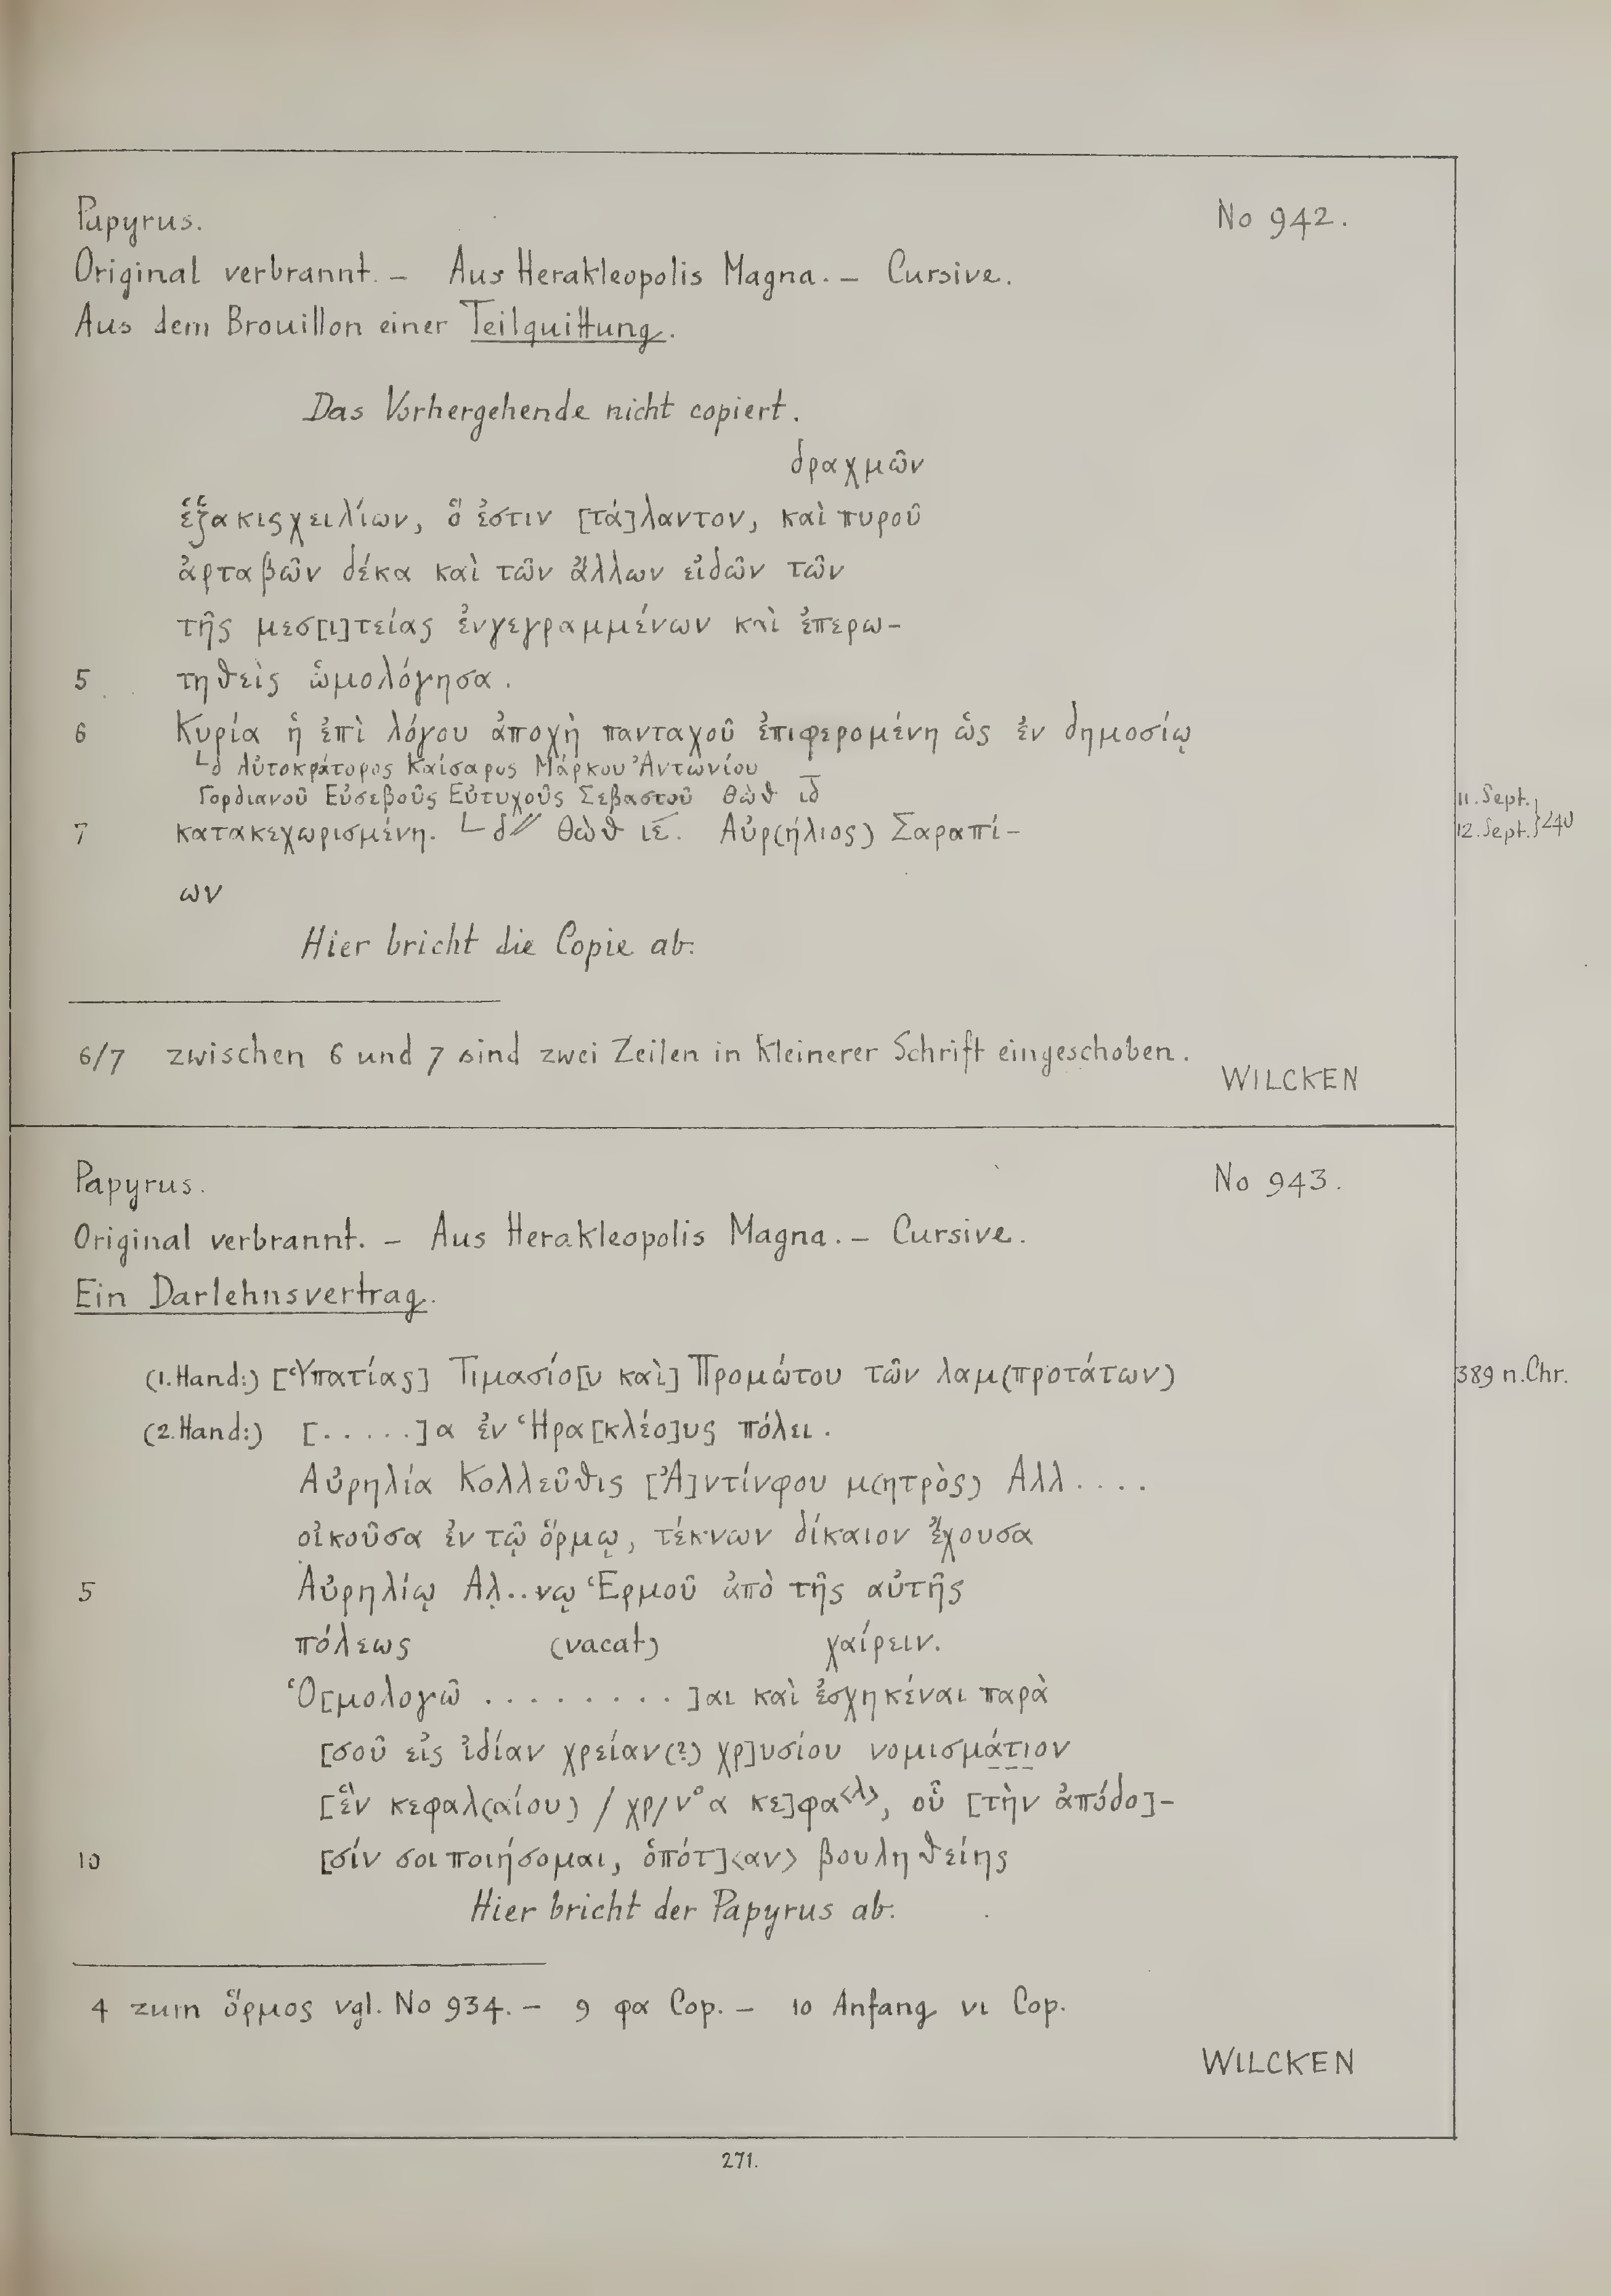 Papyrus. No 942.
Original verbrannt. – Aus Herakleopolis Magna. – Cursive.
Aus dem Brouillon einer Teilquittung.
Das Vorhergehende nicht copiert.
δραχμῶν
ἑξακισχειλίων, ὅ ἐστιν [τά]λαντον, καὶ πυροῦ
ἀρταβῶν δέκα καὶ τῶν ἄλλων εἰδῶν τῶν
τῆς μεσ[ι]τείας ἐνγεγραμμένων καὶ ἐπερω-
5 τηθεὶς ὡμολόγησα.
6 Κυρία ἡ ἐπὶ λόγου ἀποχὴ πανταχοῦ ἐπιφερομένη ὡς ἐν δημοσίῳ
└δ Αὐτοκράτορος Καίσαρος Μάρκου Ἀντωνίου
Γορδιανοῦ Εὐσεβοῦς Εὐτυχοῦς Σεβαστοῦ Θὼθ ιδ̅ 11. Sept.
7 κατακεχωρισμένη. └ δ// Θὼθ ιε̅. Αὐρ(ήλιος) Σαραπί- 12. Sept. } 240
ων
Hier bricht die Copie ab.
6/7 zwischen 6 und 7 sind zwei Zeilen in kleinerer Schrift eingeschoben.
WILCKEN
Papyrus. No 943.
Original verbrannt. – Aus Herakleopolis Magna. – Cursive.
Ein Darlehnsvertrag.
(1. Hand:) [Ὑπατίας] Τιμασίο[υ καὶ] Προμώτου τῶν λαμ(προτάτων) 389 n. Chr.
(2. Hand:) [.....]α ἐν Ἡρα[κλέο]υς πόλει.
Αὐρηλία Κολλεῦθις [Ἀ]ντίνφου μ(ητρὸς) Αλλ....
οἰκοῦσα ἐν τῷ ὅρμῳ, τέκνων δίκαιον ἔχουσα
5 Αὐρηλίῳ Αλ̣..νῳ Ἑρμοῦ ἀπὸ τῆς αὐτῆς
πόλεως (vacat) χαίρειν.
Ὁ[μολογῶ ........]αι καὶ ἐσχηκέναι παρὰ
[σοῦ εἰς ἰδίαν χρείαν(?) χρ]υσίου νομισμάτιον
[ἓν κεφαλ(αίου) / χρ/ νº α κε]φα<λ>, οὗ [τὴν ἀπόδο]-
10 [σίν σοι ποιήσομαι, ὁπότ]<αν> βουληθείης
Hier bricht der Papyrus ab.
4 zum ὅρμος vgl. No 934. – 9 φα Cop. – 10 Anfang νι Cop.
WILCKEN
271.